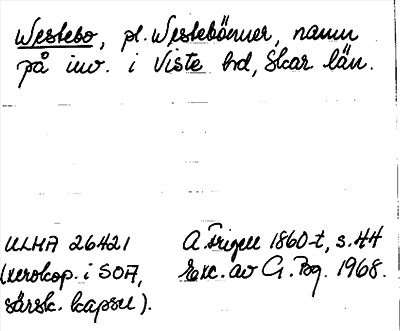 Westebo, pl. Westeböänner, namn
på inv. i Viste hd, Skar. län.
ULMA 26421
(xerokop. i SOA,
särsk. kapsel).
A Frigell 1860-t, s. 44
Exc. av G. Bg. 1968.